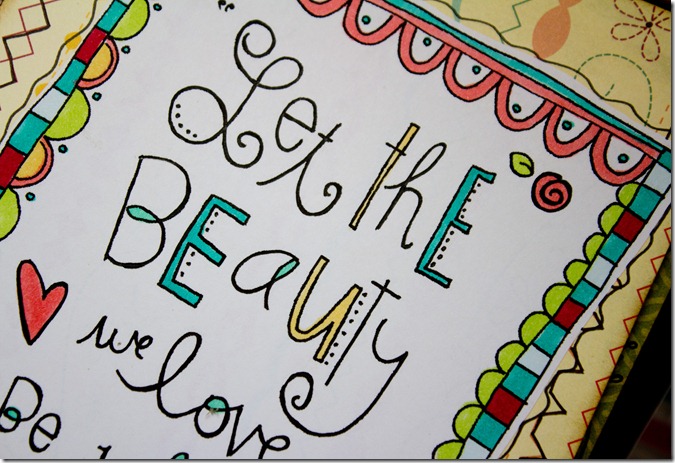 Let the
BEauty
we love
Be